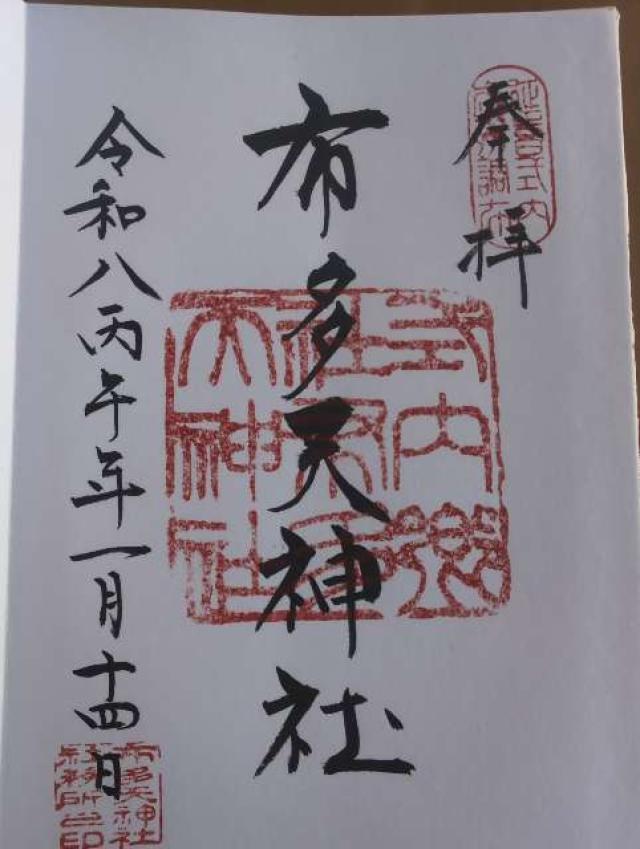 奉拝
布多天神社
令和八丙午年一月十四日
式内郷社布多天神社
布多天神社社務所之印